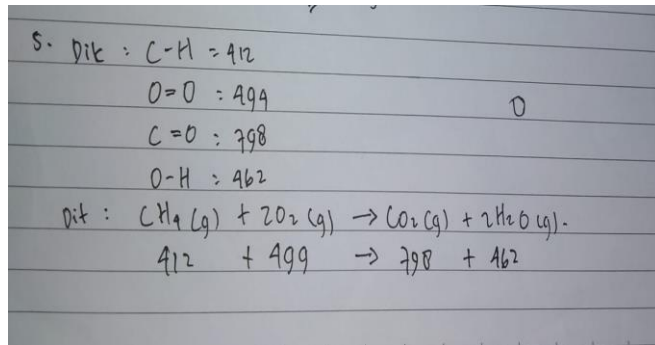 5. Dik : C-H = 412
O=O : 494
O
C=O : 798
O-H : 462
Dit : CH4 (g) + 2O2 (g) → CO2 (g) + 2H2O (g).
412 + 499 → 798 + 462